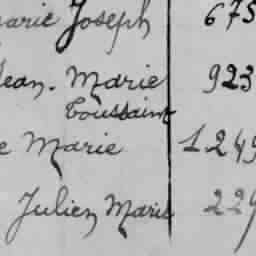 Marie Joseph 675
Jean. Marie 923
Toussaint
e Marie 1249
Julien Marie 229